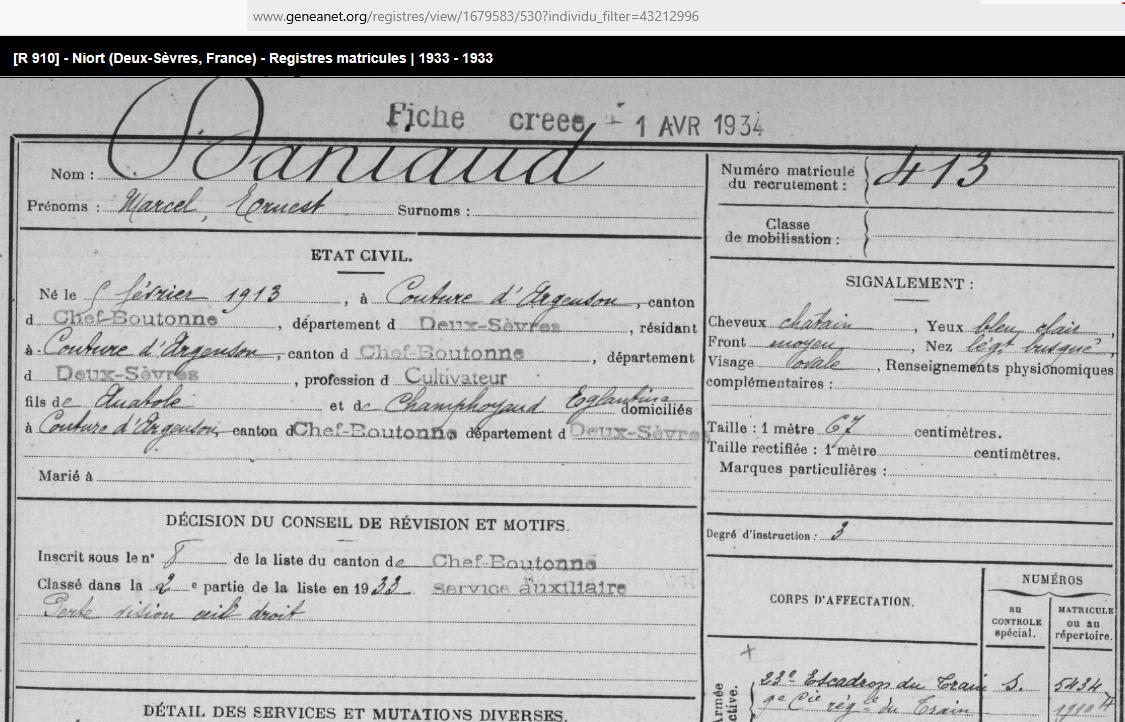 www.geneanet.org/registres/view/1679583/530?individu_filter=43212996
[R 910] - Niort (Deux-Sèvres, France) - Registres matricules | 1933 - 1933
Fiche creee - 1 AVR 1934
Nom : Daniaud
Prénoms : Marcel, Ernest Surnoms :
Numéro matricule du recrutement : 413
Classe de mobilisation :
ETAT CIVIL.
Né le 5 février 1913, à Couture d'Argenson, canton
d Chef-Boutonne, département d Deux-Sèvres, résidant
à Couture d'Argenson, canton d Chef-Boutonne, département
d Deux-Sèvres, profession d Cultivateur
fils de Anatole et de Champhoyaud Eglantine domiciliés
à Couture d'Argenson, canton d Chef-Boutonne département d Deux-Sèvres
Marié à
SIGNALEMENT :
Cheveux chatain, Yeux bleu clair,
Front moyen, Nez légt busqué,
Visage ovale, Renseignements physionomiques
complémentaires :
Taille : 1 mètre 67 centimètres.
Taille rectifiée : 1 mètre centimètres.
Marques particulières :
Degré d'instruction : 3
DÉCISION DU CONSEIL DE RÉVISION ET MOTIFS.
Inscrit sous le n° 8 de la liste du canton de Chef-Boutonne
Classé dans la 2 e partie de la liste en 1933 service auxiliaire
Perte vision œil droit
CORPS D'AFFECTATION.
NUMÉROS
au CONTROLE spécial.
MATRICULE ou au répertoire.
Armée active.
23e Escadron du Train S. 5434
9e Cie régle du Train
DÉTAIL DES SERVICES ET MUTATIONS DIVERSES.